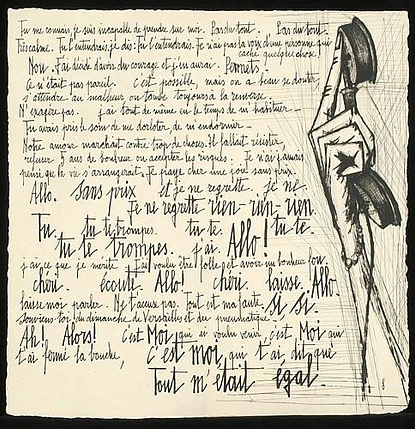 Tu me connais, je suis incapable de prendre sur moi. Pas du tout. Pas du tout.
Très calme. Tu l'entendrais, je dis: Tu l'entendrais. Je n'ai pas la voix d'une personne qui
cache quelque chose.
Non. J'ai décidé d'avoir du courage et j'en aurai. Permets,
Ce n'était pas pareil. C'est possible mais on a beau se douter,
s'attendre au malheur on tombe toujours à la renverse.
N'exagère pas. j'ai tout de même eu le temps de m'habituer.
Tu avais pris le soin de me dorloter, de m'endormir.
Notre amour marchait contre trop de choses. Il fallait résister,
refuser 5 ans de bonheur ou accepter les risques. Je n'ai jamais
pensé que la vie s'arrangerait. Je paye cher une joie sans prix.
Allo. Sans prix et je ne regrette. je ne.
Je ne regrette rien - rien - rien.
Tu tu te trompes. tu te. tu te.
tu te trompes. j'ai. Allo!
j'ai ce que je mérite. J'ai voulu être folle et avoir un bonheur fou.
chéri. écoute. Allo! chéri. laisse. Allo.
laisse moi parler. Ne t'accuse pas. Tout est ma faute. Si Si.
Souviens-toi du dimanche de Versailles et du pneumatique.
Ah! Alors! C'est Moi qui ai voulu venir, c'est Moi qui
t'ai fermé la bouche, c'est moi, qui t'ai dit que
Tout m'était egal.